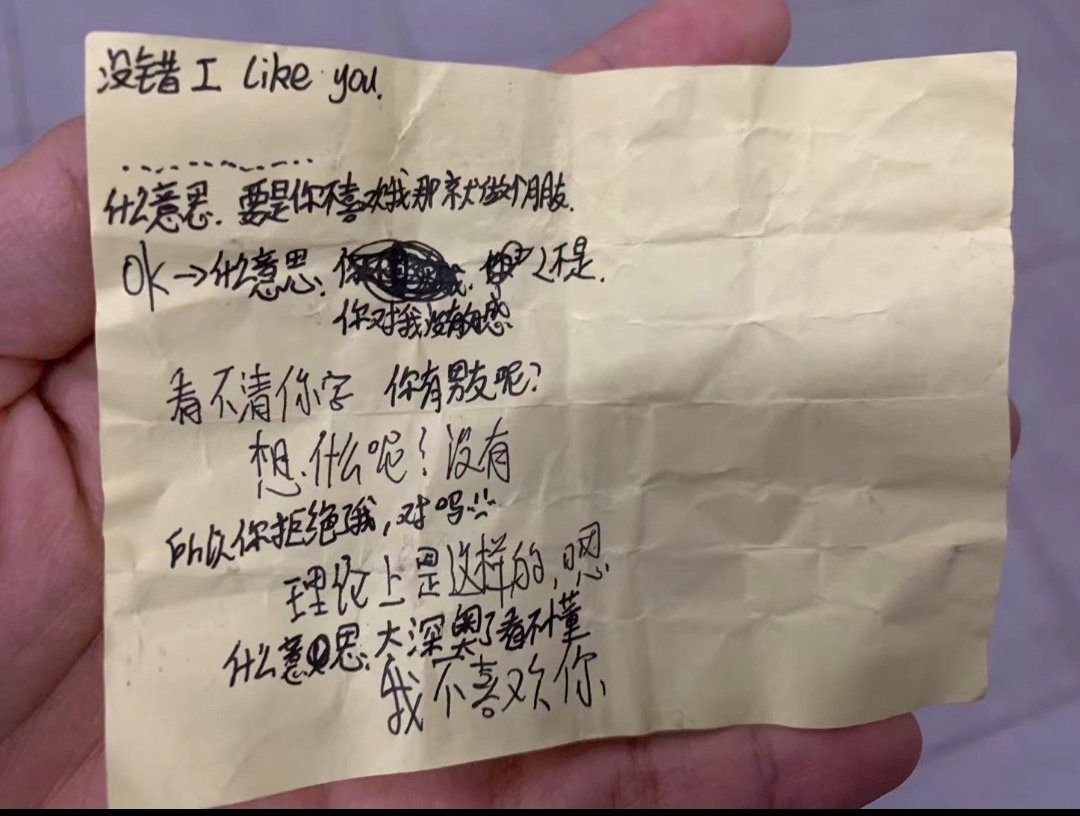 没错 I like you.
............
什么意思. 要是你不喜欢我那就做个朋友.
OK→什么意思. 你 不是.
你对我没有感
看不清你字 你有男友呢?
想什么呢? 没有
所以你拒绝了我, 对吗
理论上是这样的, 嗯
什么意思. 太深奥了看不懂
我不喜欢你